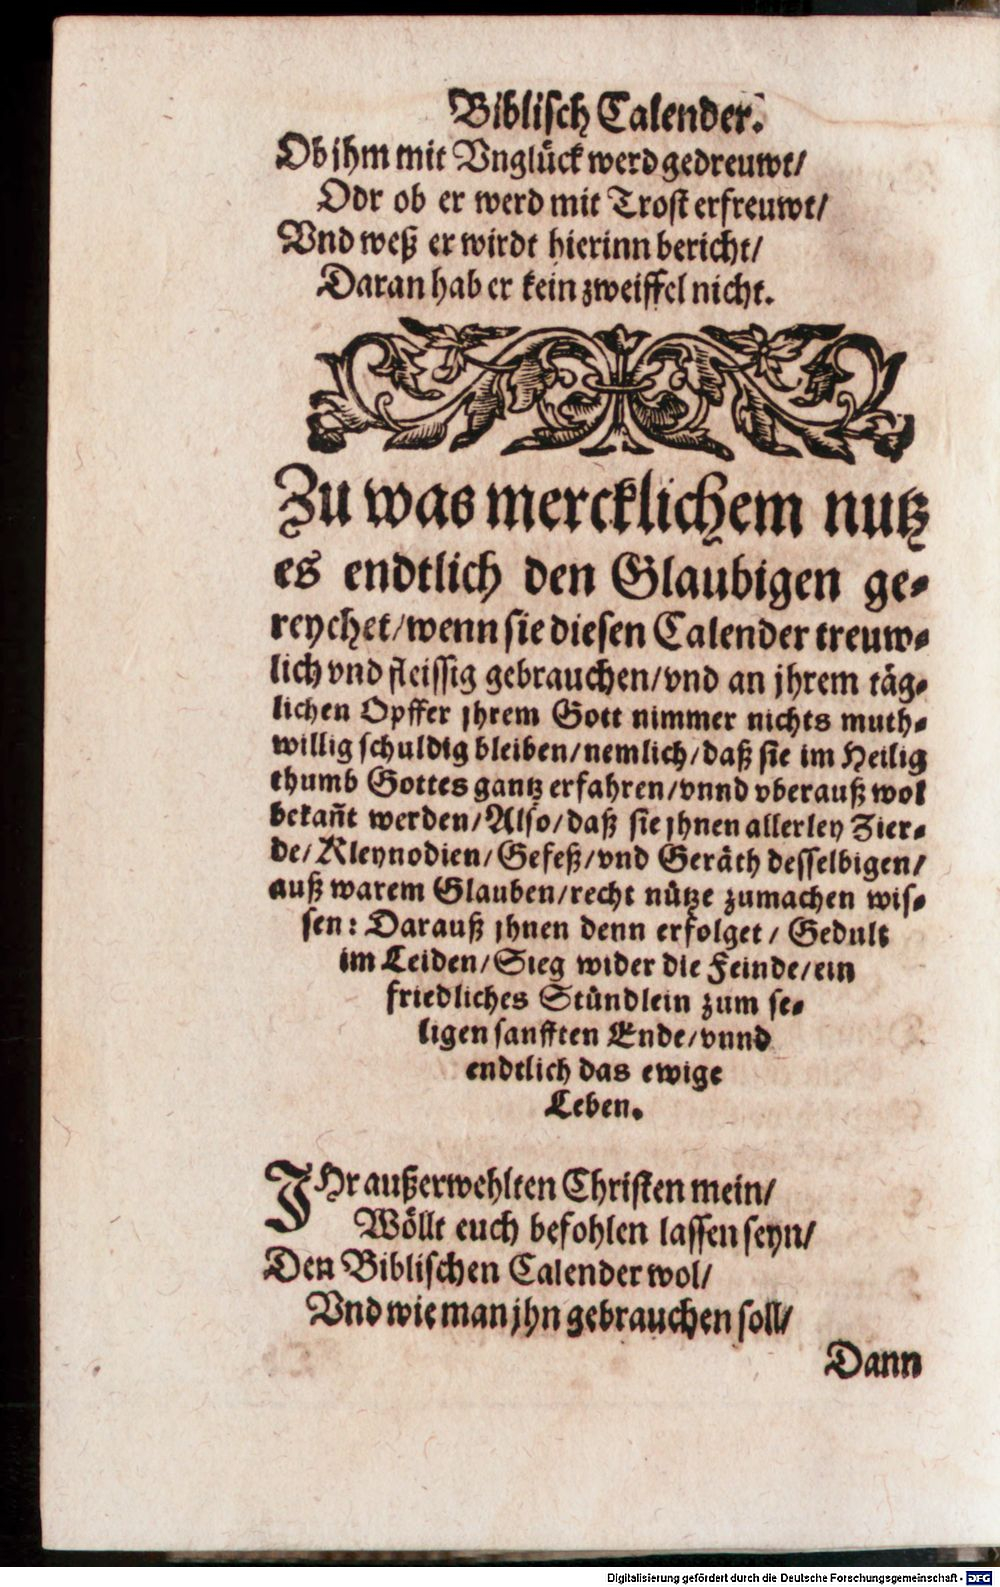 Biblisch Calender.
Ob jhm mit Vnglück werd gedreuwt/
Odr ob er werd mit Trost erfreuwt/
Vnd weß er wirdt hierinn bericht/
Daran hab er kein zweiffel nicht.
Zu was mercklichem nutz
es endtlich den Glaubigen ge-
reychet/wenn sie diesen Calender treuw-
lich vnd fleissig gebrauchen/vnd an jhrem täg-
lichen Opffer jhrem Gott nimmer nichts muth-
willig schuldig bleiben/nemlich/daß sie im Heilig
thumb Gottes gantz erfahren/vnnd vberauß wol
bekañt werden/Also/daß sie jhnen allerley Zier-
de/Kleynodien/Gefeß/vnd Geräth desselbigen/
auß warem Glauben/recht nütze zumachen wis-
sen: Darauß jhnen denn erfolget/Gedult
im Leiden/Sieg wider die Feinde/ein
friedliches Stündlein zum se-
ligen sanfften Ende/vnnd
endtlich das ewige
Leben.
IHr außerwehlten Christen mein/
Wöllt euch befohlen lassen seyn/
Den Biblischen Calender wol/
Vnd wie man jhn gebrauchen soll/
Dann
Digitalisierung gefördert durch die Deutsche Forschungsgemeinschaft - DFG